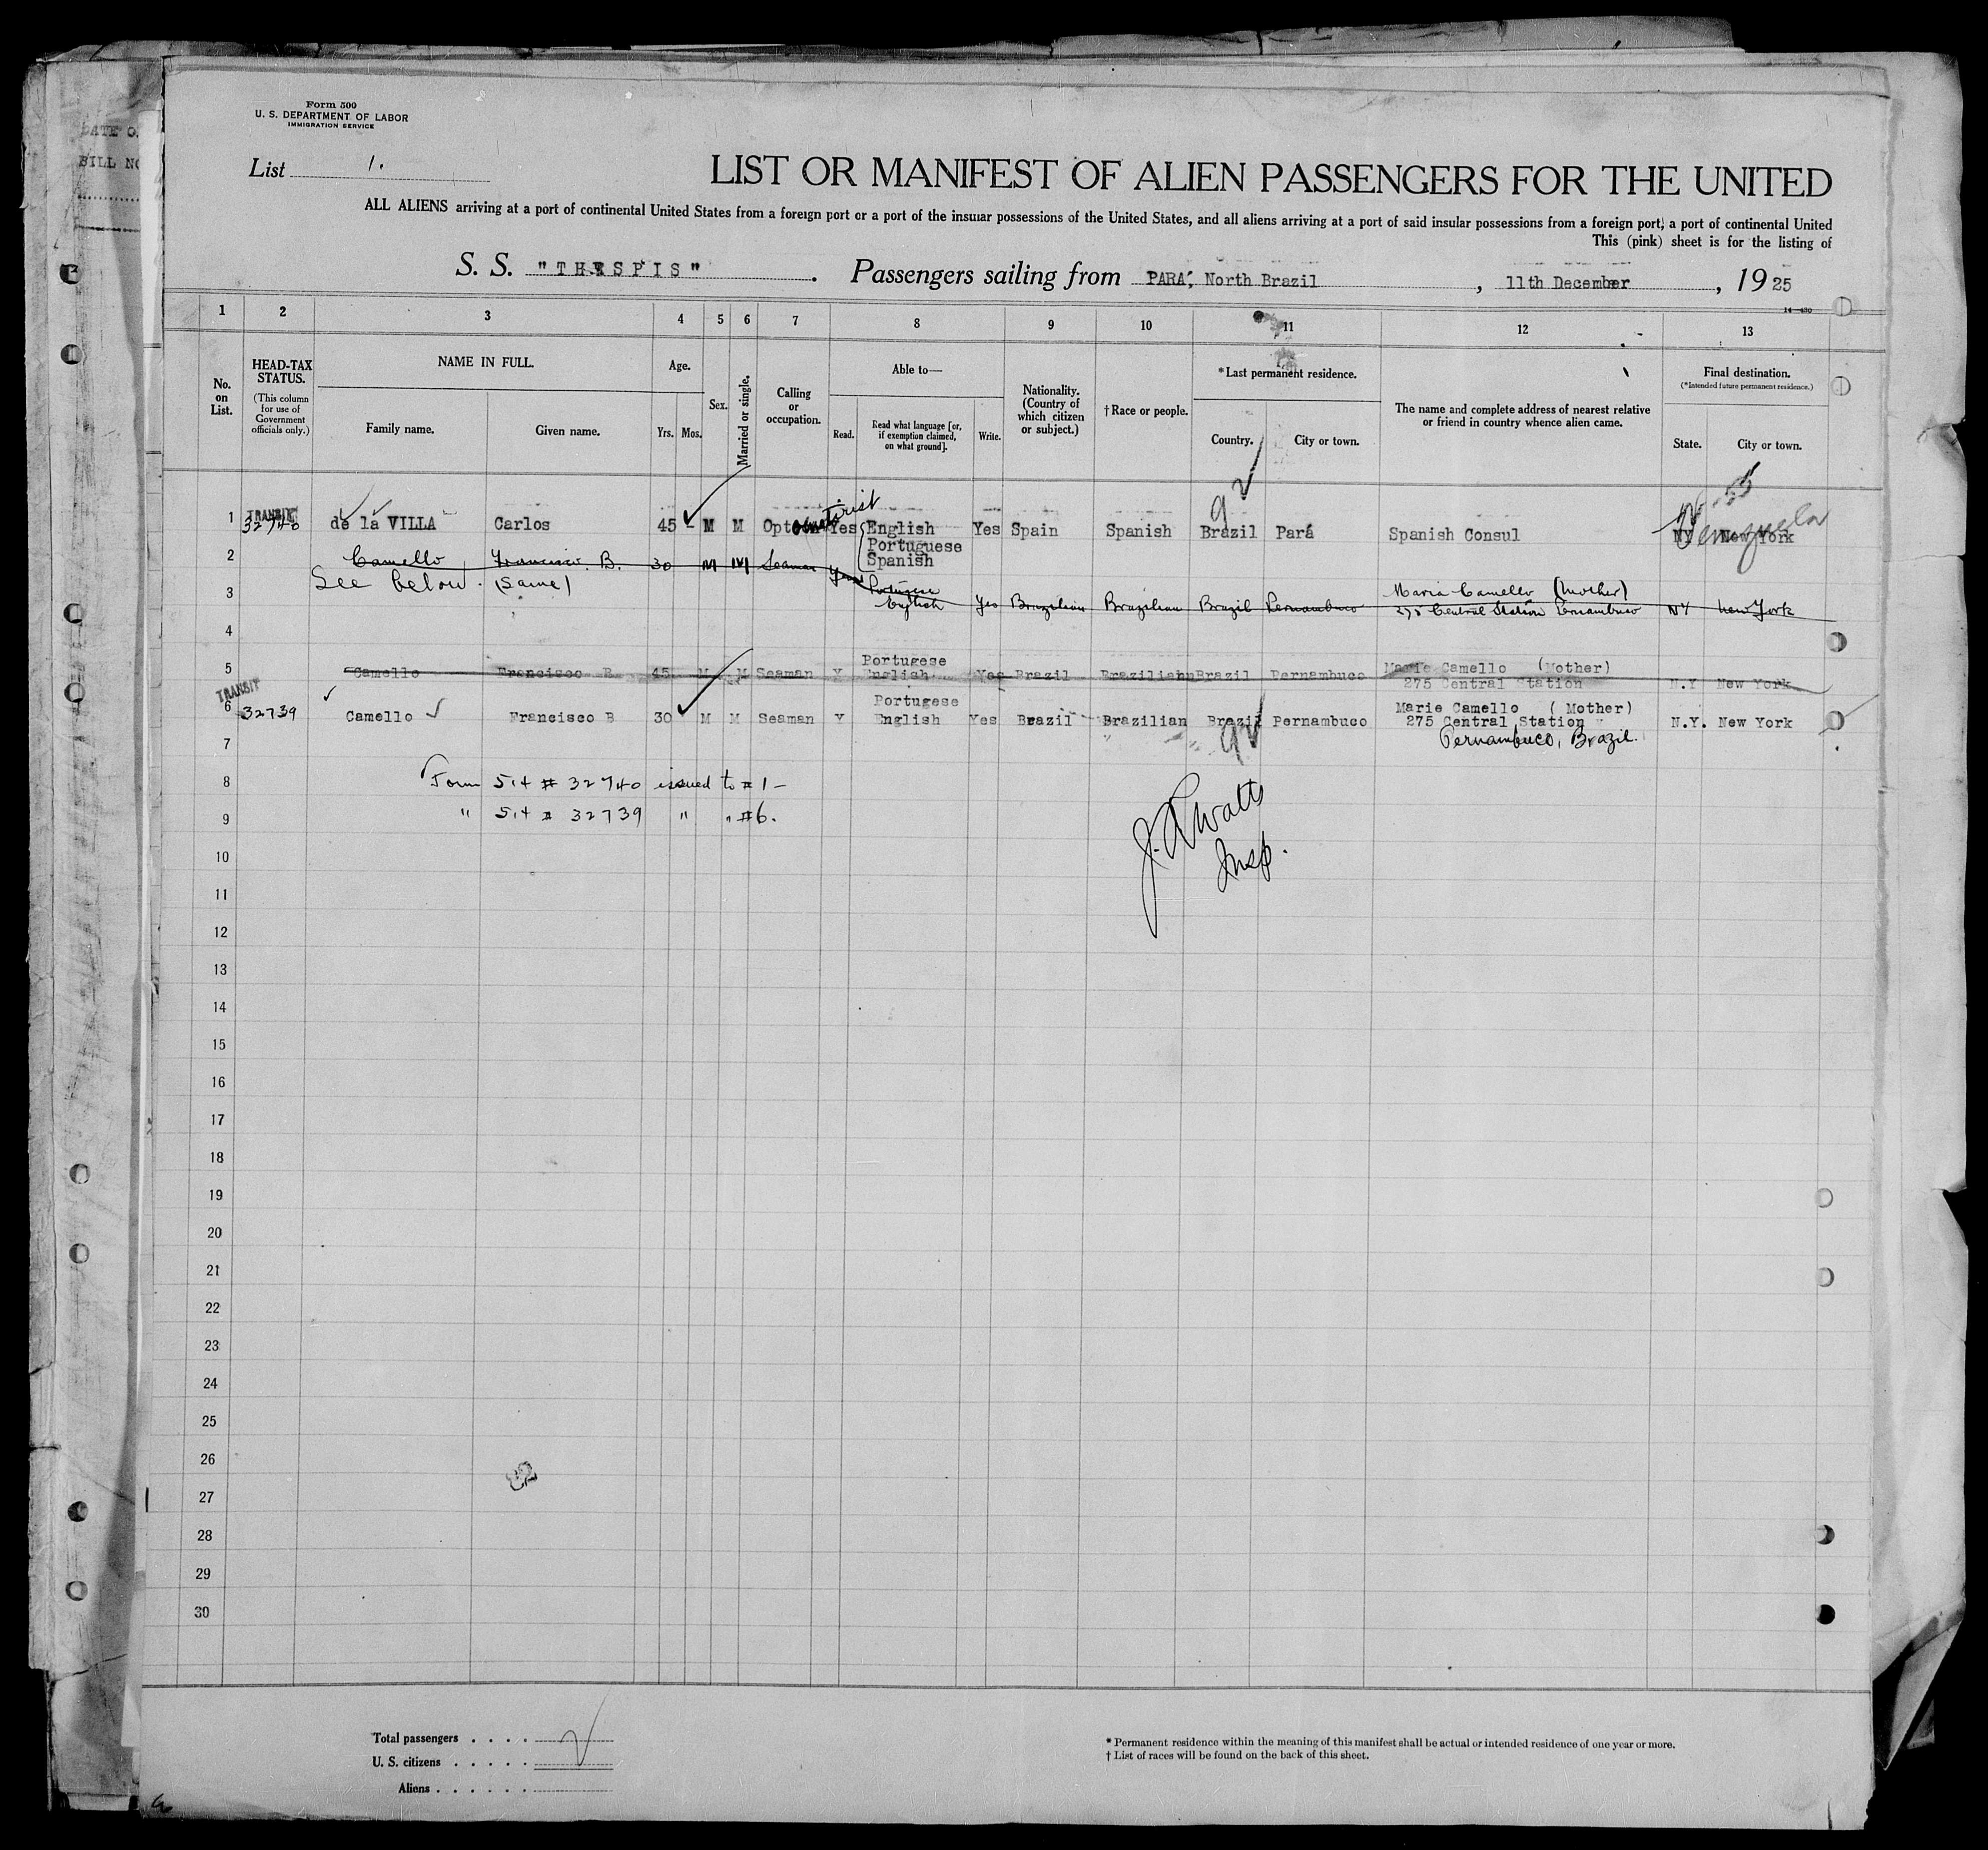 DATE O
BILL NO
Form 500
U. S. DEPARTMENT OF LABOR
IMMIGRATION SERVICE
List 1.
LIST OR MANIFEST OF ALIEN PASSENGERS FOR THE UNITED
ALL ALIENS arriving at a port of continental United States from a foreign port or a port of the insular possessions of the United States, and all aliens arriving at a port of said insular possessions from a foreign port, a port of continental United
This (pink) sheet is for the listing of
S. S. "THESPIS". Passengers sailing from PARA, North Brazil, 11th December, 1925
14-430
1 2 3 4 5 6 7 8 9 10 11 12 13
No. on List. HEAD-TAX STATUS. (This column for use of Government officials only.) NAME IN FULL. Family name. Given name. Age. Yrs. Mos. Sex. Married or single. Calling or occupation. Able to— Read. Read what language [or, if exemption claimed, on what ground]. Write. Nationality. (Country of which citizen or subject.) †Race or people. *Last permanent residence. Country. City or town. The name and complete address of nearest relative or friend in country whence alien came. Final destination. (*Intended future permanent residence.) State. City or town.
1 TRANSIT 32740 de la VILLA Carlos 45 - M M Optometrist Yes English Yes Spain Spanish Brazil Pará Spanish Consul NY New York Venezuela
Portuguese
2 Camello Francisco B. 30 M M Seaman Yes Spanish
See below. (Same)
3 Portugese Maria Camello (Mother)
English Yes Brazilian Brazilian Brazil Pernambuco 275 Central Station Pernambuco NY New York
4
Portugese Marie Camello (Mother)
5 Camello Francisco B 45 M M Seaman Y English Yes Brazil Brazilian Brazil Pernambuco
275 Central Station N.Y New York
TRANSIT Portugese Marie Camello (Mother)
6 32739 Camello Francisco B 30 M M Seaman Y English Yes Brazil Brazilian Brazil Pernambuco 275 Central Station N.Y. New York
7 Pernambuco, Brazil.
8 Form 514 # 32740 issued to #1-
9 " 514 # 32739 " " #6.
J. Watts
Insp.
10
11
12
13
14
15
16
17
18
19
20
21
22
23
24
25
26
27
28
29
30
Total passengers
U. S. citizens
Aliens
* Permanent residence within the meaning of this manifest shall be actual or intended residence of one year or more.
† List of races will be found on the back of this sheet.